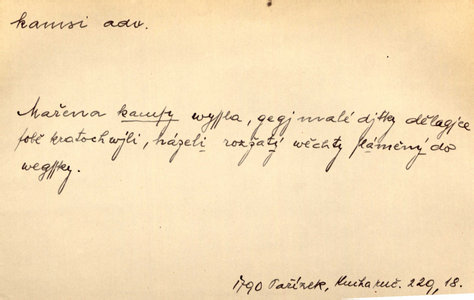 kamsi adv.
Mařena kamsy wyssla, gegj malé djtky dělagjce
sobě kratochwjli, házeli rozžatý wěchty slāměný do
wegssky.
1790 Pařízek, Kucharuč. 229, 18.